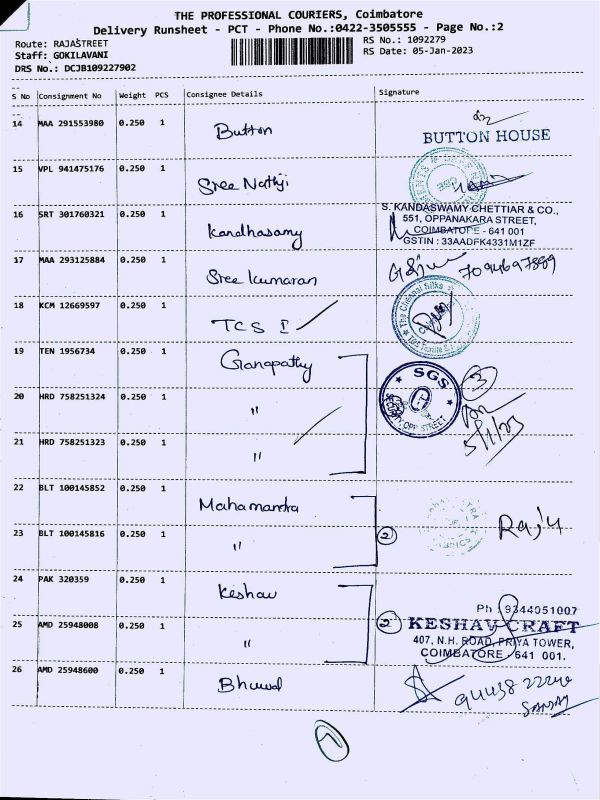 THE PROFESSIONAL COURIERS, Coimbatore
Delivery Runsheet - PCT - Phone No.:0422-3505555 - Page No.:2
Route: RAJASTREET
Staff: GOKILAVANI
DRS No.: DCJB109227902
RS No.: 1092279
RS Date: 05-Jan-2023
S No Consignment No Weight PCS Consignee Details Signature
14 MAA 291553980 0.250 1 Button
BUTTON HOUSE
15 VPL 941475176 0.250 1 Sree Nathji
16 SRT 301760321 0.250 1 Kandhasamy
S. KANDASWAMY CHETTIAR & CO.,
551, OPPANAKARA STREET,
COIMBATORE - 641 001
GSTIN : 33AADFK4331M1ZF
17 MAA 293125884 0.250 1 Sree Kumaran
18 KCM 12669597 0.250 1 TCS I
The Chennai Silks
19 TEN 1956734 0.250 1 Ganapathy
SGS
3
20 HRD 758251324 0.250 1 "
OPP STREET
5/1/23
21 HRD 758251323 0.250 1 "
22 BLT 100145852 0.250 1 Mahamantra
23 BLT 100145816 0.250 1 " 2 Raju
24 PAK 320359 0.250 1 Keshav
Ph : 9344051007
25 AMD 25948008 0.250 1 " 2 KESHAV CRAFT
407, N.H. ROAD, PRIYA TOWER,
COIMBATORE - 641 001.
26 AMD 25948600 0.250 1
SANJAY